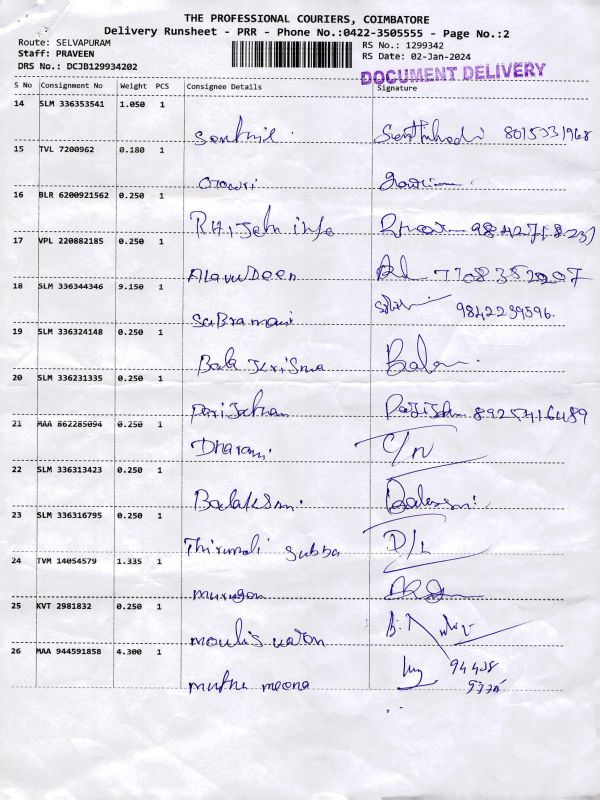 THE PROFESSIONAL COURIERS, COIMBATORE
Delivery Runsheet - PRR - Phone No.:0422-3505555 - Page No.:2
Route: SELVAPURAM RS No.: 1299342
Staff: PRAVEEN RS Date: 02-Jan-2024
DRS No.: DCJB129934202
DOCUMENT DELIVERY
S No Consignment No Weight PCS Consignee Details Signature
14 SLM 336353541 1.050 1
8015331968
15 TVL 7200962 0.180 1
16 BLR 6200921562 0.250 1
info
17 VPL 220882185 0.250 1
AlavuDeen 7708352907
18 SLM 336344346 9.150 1
SaBramani 9842239596.
19 SLM 336324148 0.250 1
Bala
20 SLM 336231335 0.250 1
8925416489
21 MAA 862285094 0.250 1
Dharani C/N
22 SLM 336313423 0.250 1
23 SLM 336316795 0.250 1
Subba D/L
24 TVM 14054579 1.335 1
murugan
25 KVT 2981832 0.250 1
26 MAA 944591858 4.300 1
muthu meena